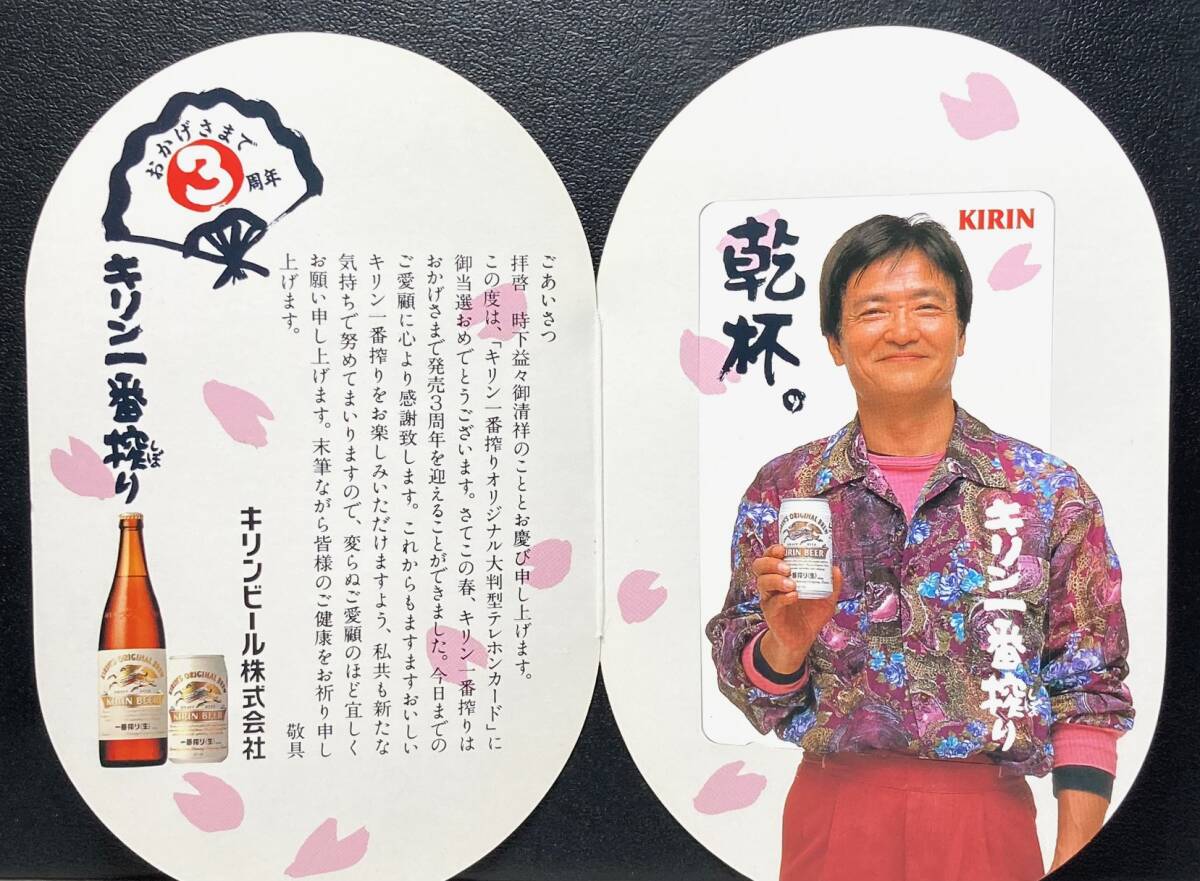 おかげさまで
3周年
キリン一番搾り
しぼ
ごあいさつ
拝啓　時下益々御清祥のこととお慶び申し上げます。
この度は、「キリン一番搾りオリジナル大判型テレホンカード」に
御当選おめでとうございます。さてこの春、キリン一番搾りは
おかげさまで発売3周年を迎えることができました。今日までの
ご愛顧に心より感謝致します。これからもますますおいしい
キリン一番搾りをお楽しみいただけますよう、私共も新たな
気持ちで努めてまいりますので、変らぬご愛顧のほど宜しく
お願い申し上げます。末筆ながら皆様のご健康をお祈り申し
上げます。
敬具
キリンビール株式会社
KIRIN'S ORIGINAL BREW
KIRIN BEER
一番搾り〈生〉
KIRIN'S ORIGINAL BREW
KIRIN BEER
一番搾り〈生〉
KIRIN
乾杯。
KIRIN'S ORIGINAL BREW
KIRIN BEER
一番搾り〈生〉
キリン一番搾り
しぼ